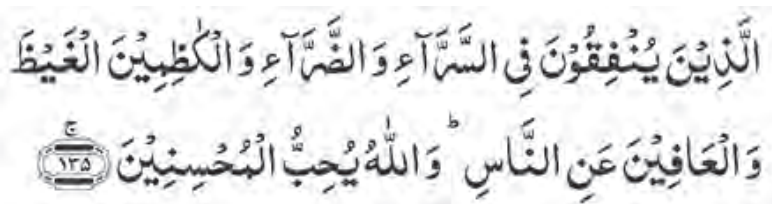 الَّذِيْنَ يُنْفِقُوْنَ فِي السَّرَّآءِ وَالضَّرَّآءِ وَالْكٰظِمِيْنَ الْغَيْظَ
وَالْعَافِيْنَ عَنِ النَّاسِ ؕ وَاللّٰهُ يُحِبُّ الْمُحْسِنِيْنَ ۚ ﴿۱۳۵﴾